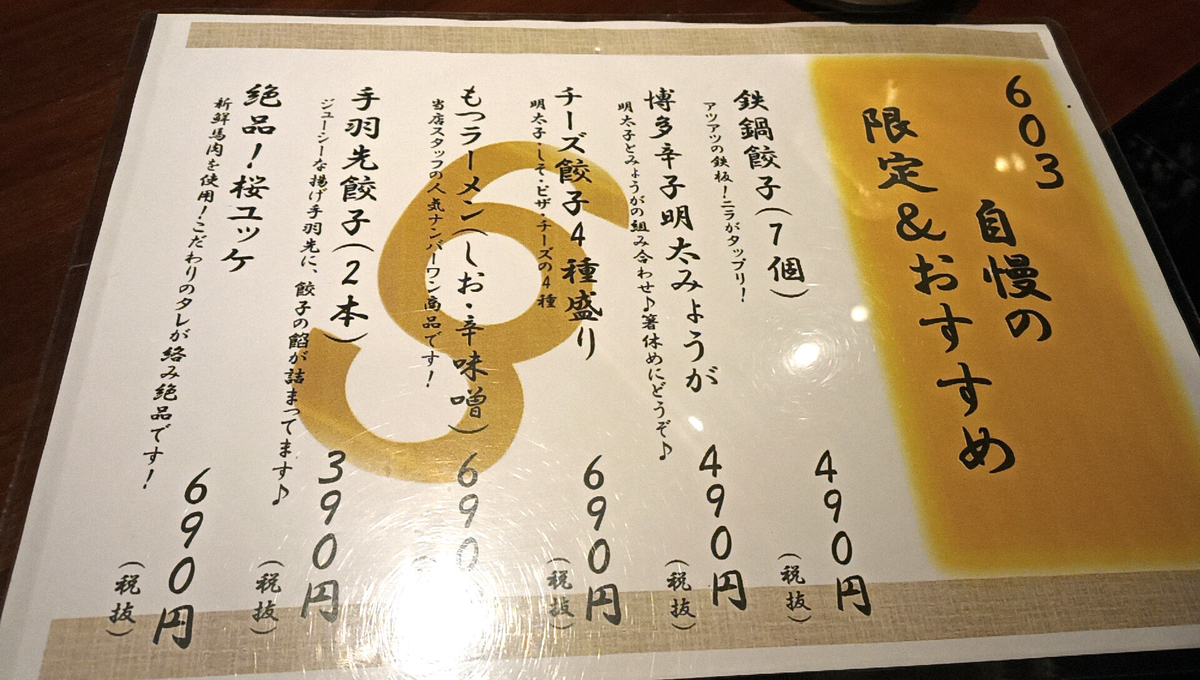 603
自慢の
限定&おすすめ
鉄鍋餃子(7個)
490円
(税抜)
アツアツの鉄板!ニラがタップリ!
博多辛子明太みょうが
490円
(税抜)
明太子とみょうがの組み合わせ♪箸休めにどうぞ♪
チーズ餃子4種盛り
690円
(税抜)
明太子・しそ・ピザ・チーズの4種
もつラーメン(しお・辛味噌)
690
当店スタッフの人気ナンバーワン商品です!
手羽先餃子(2本)
390円
(税抜)
ジューシーな揚げ手羽先に、餃子の餡が詰まってます♪
絶品!桜ユッケ
690円
(税抜)
新鮮馬肉を使用!こだわりのタレが絡み絶品です!